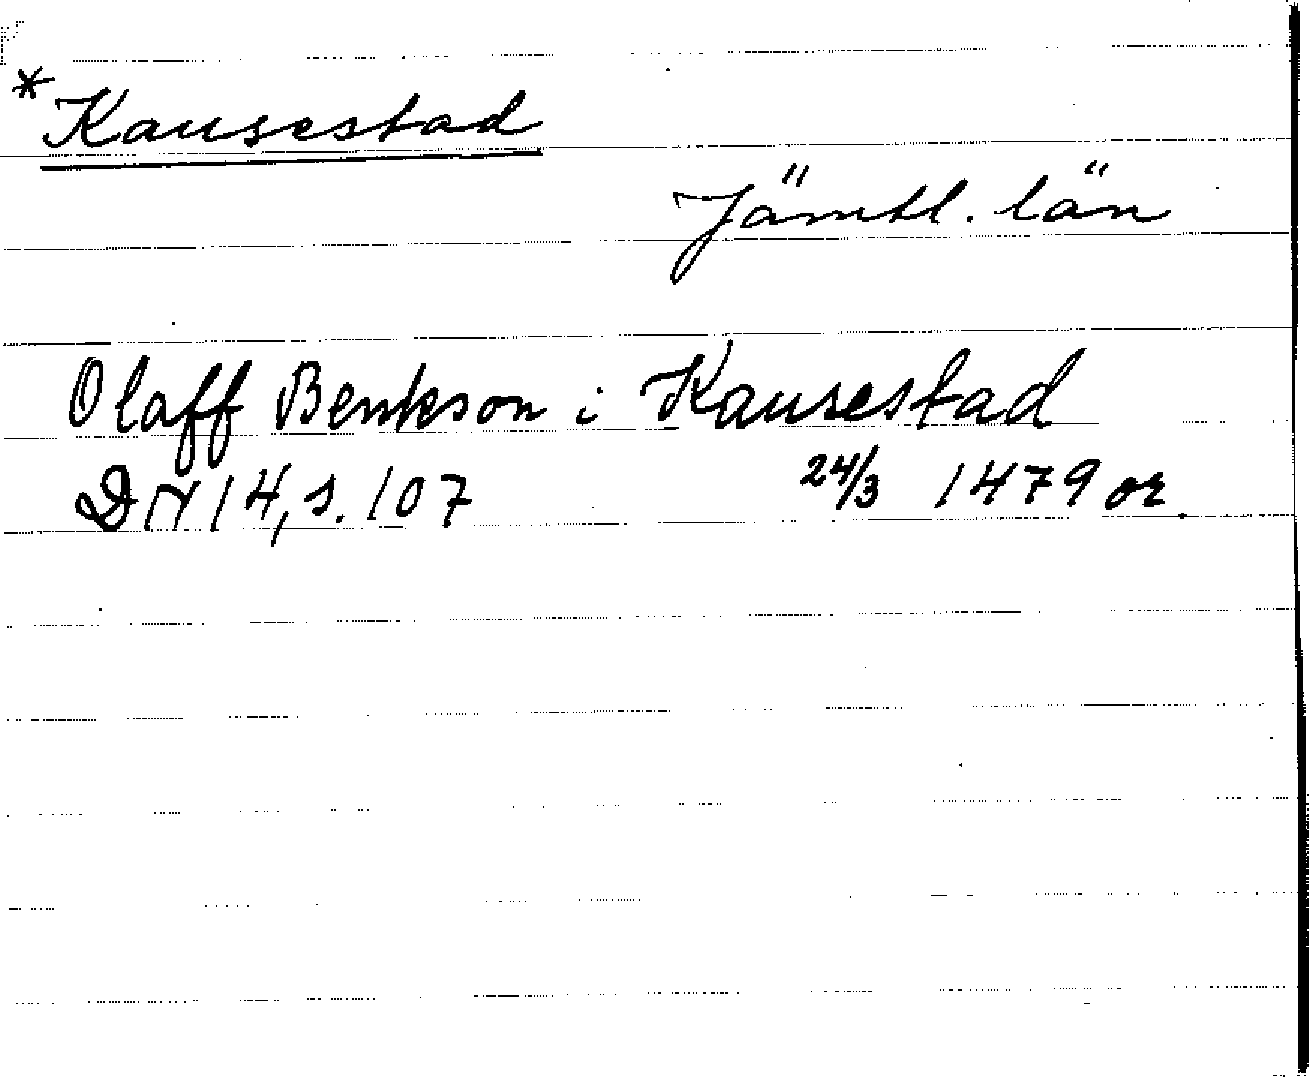 *Kausestad
Jämtl. län
Olaff Benkson i Kausestad
DN 14, s. 107 24/3 1479 or.